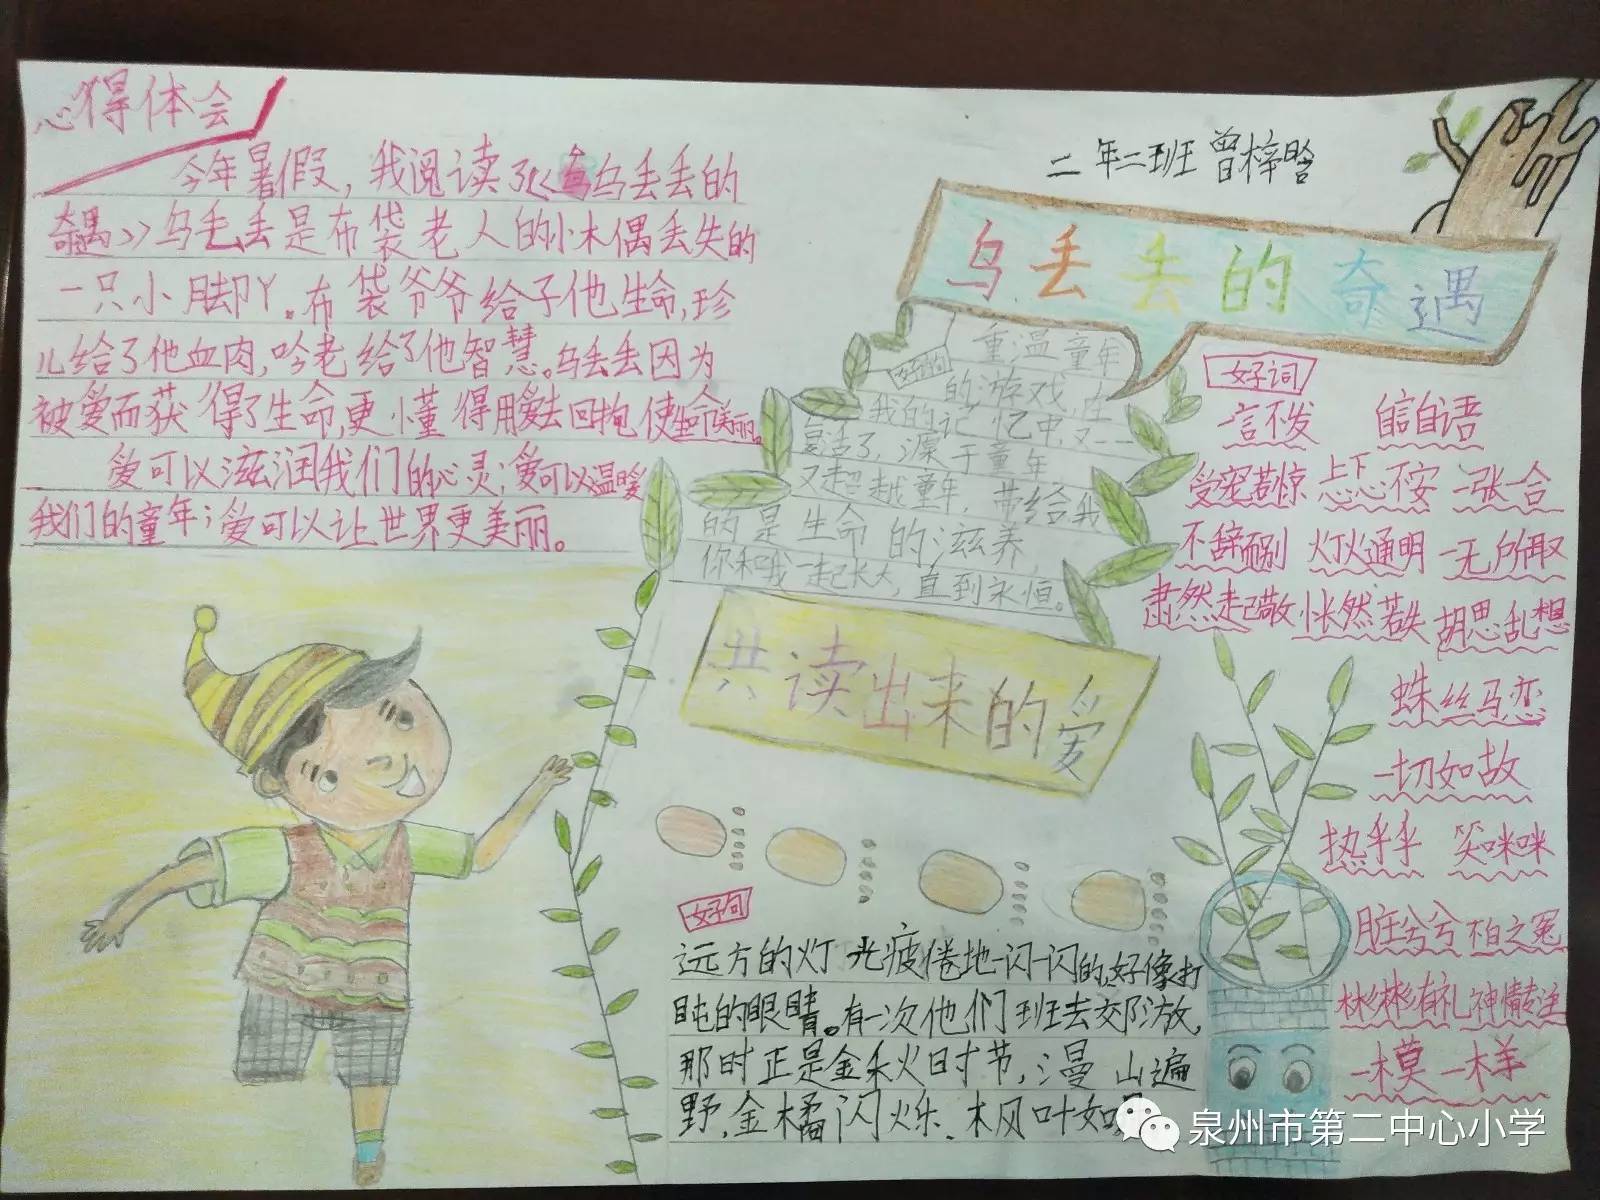 心得体会
今年暑假，我阅读了《乌丢丢的
奇遇》乌丢丢是布袋老人的小木偶丢失的
一只小脚丫。布袋爷爷给予他生命，珍
儿给了他血肉，吟老给了他智慧。乌丢丢因为
被爱而获得了生命，更懂得用爱去回抱，使生命美丽。
爱可以滋润我们的心灵；爱可以温暖
我们的童年；爱可以让世界更美丽。
二年二班 曾梓晗
乌丢丢的奇遇
好句
重温童年
的游戏，在
我的记忆中，又一一
复活了，源于童年
又超越童年，带给我
的是生命的滋养，
你和我一起长大，直到永恒。
共读出来的爱
好词
一言不发 自言自语
受宠若惊 忐忑不安 一张一合
不辞而别 灯火通明 一无所取
肃然起敬 怅然若失 胡思乱想
蛛丝马恋
一切如故
热乎乎 笑咪咪
脏兮兮 不白之冤
彬彬有礼 神情专注
一模一样
好句
远方的灯光疲倦地一闪一闪的，好像打
盹的眼睛。有一次他们班去郊游，
那时正是金秋时节，漫山遍
野，金橘闪烁、枫叶如
泉州市第二中心小学